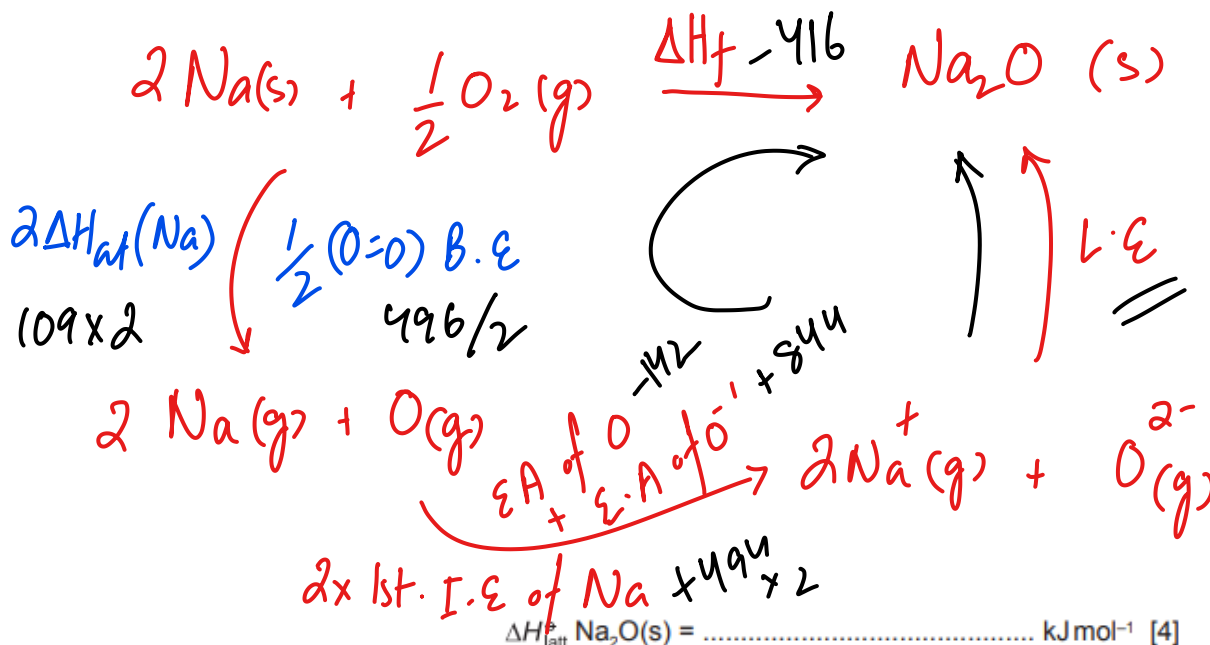 2Na(s) + 1/2 O₂(g) ΔHf -416 Na₂O (s)
2ΔHat(Na) 1/2 (O=O) B.E L.E
109x2 496/2
-142 +844
2 Na(g) + O(g) EA of O + E.A of O⁻¹ 2Na⁺(g) + O²⁻(g)
2x 1st. I.E of Na +494 x2
ΔH⦵latt Na₂O(s) = ........................................ kJ mol⁻¹ [4]